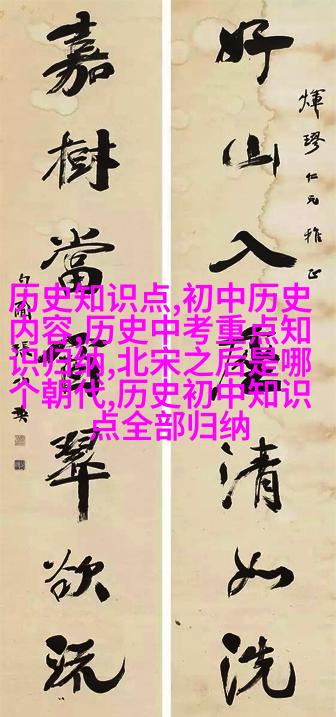 好山入清如洗
煇璆仁兄雅正
嘉樹當翠欲流
历史知识点,初中历史
内容,历史中考重点知
识归纳,北宋之后是哪
个朝代,历史初中知识
点全部归纳